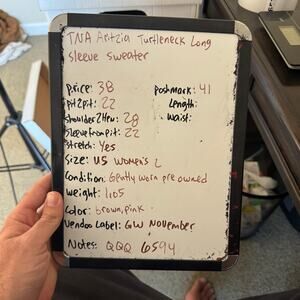 TNA Aritzia Turtleneck Long
Sleeve sweater
price: 38
postmark: 41
pit2pit: 22
Length:
shoulder2Hem: 28
waist:
sleeve from pit: 22
stretch: Yes
Size: US Women's L
Condition: Gently worn pre owned
weight: 1.05
Color: brown, pink
Vendoo Label: GW November
Notes: QQQ 6594